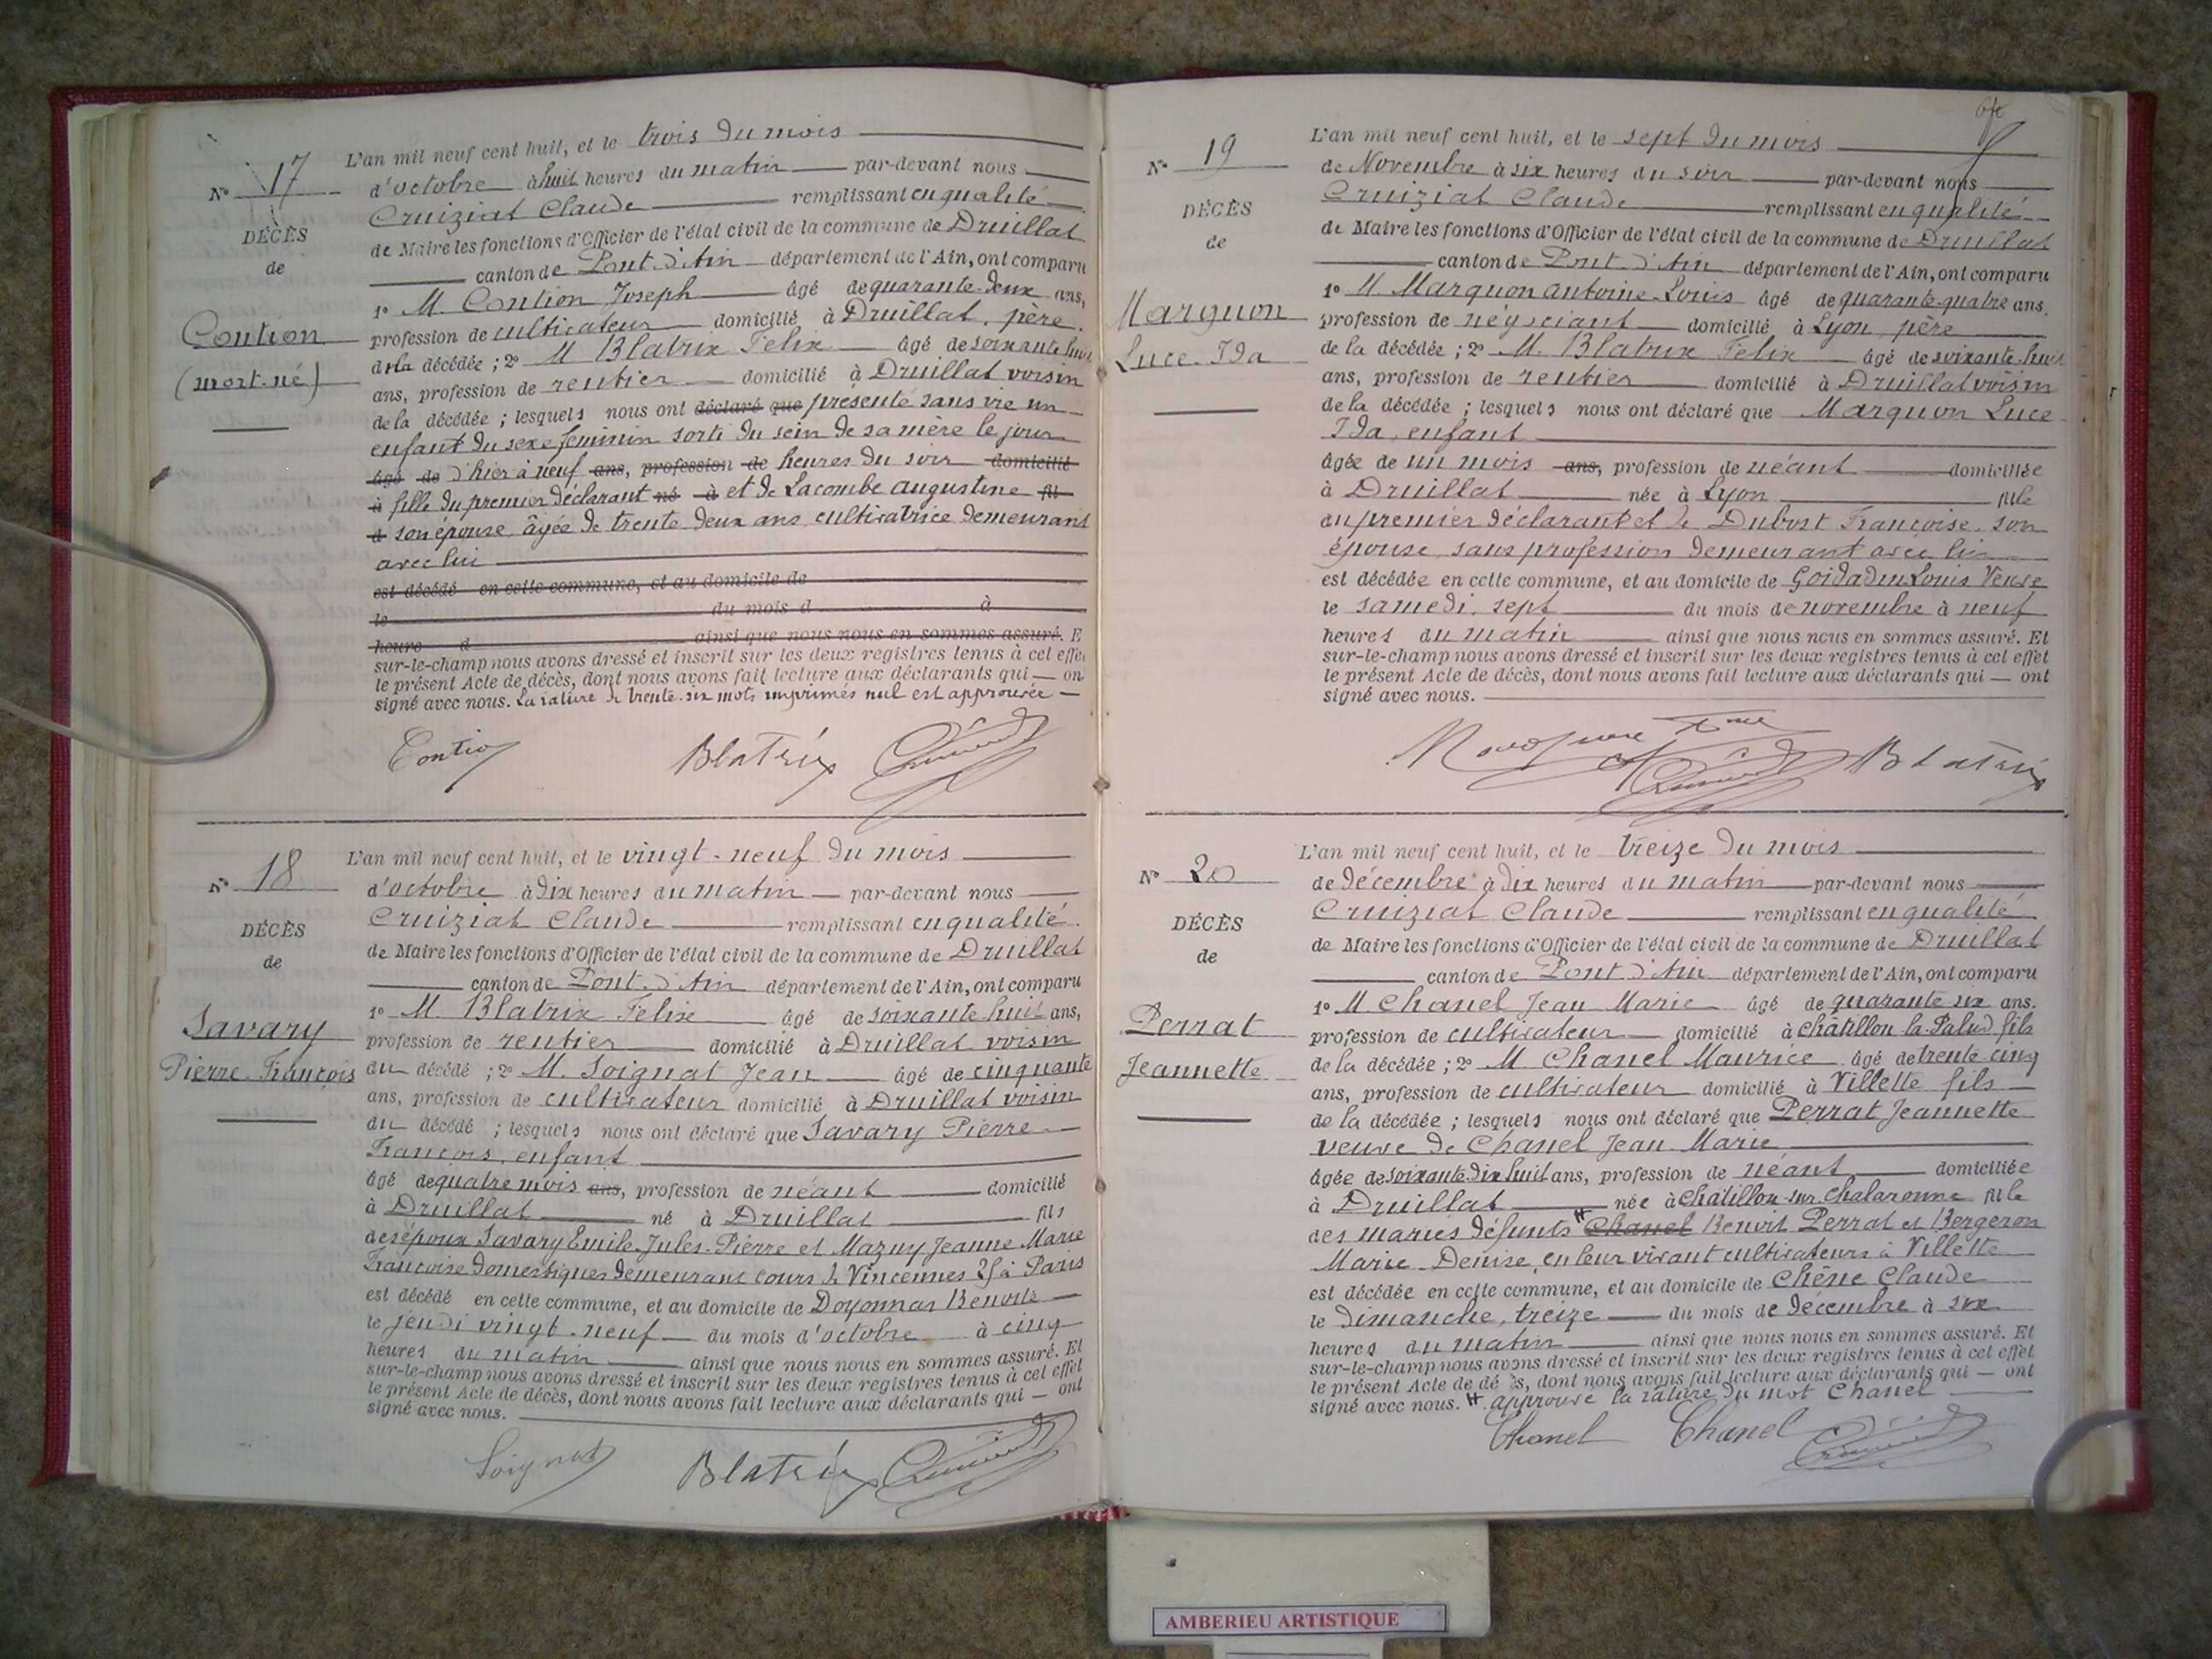 N° 17
DÉCÈS
de
Contion
(mort-né)
L'an mil neuf cent huit, et le trois du mois
d'octobre à huit heures du matin par-devant nous
Cruiziat Claude remplissant en qualité
de Maire les fonctions d'Officier de l'état civil de la commune de Druillat
canton de Pont-d'Ain département de l'Ain, ont comparu
1° M. Contion Joseph âgé de quarante-deux ans,
profession de cultivateur domicilié à Druillat, père
de la décédée ; 2° M Blatrix Félix âgé de soixante huit
ans, profession de rentier domicilié à Druillat voisin
de la décédée ; lesquels nous ont déclaré que présenté sans vie un
enfant du sexe féminin sorti du sein de sa mère le jour
âgé de d'hier à neuf ans, profession de heures du soir domicilié
à fille du premier déclarant né à et de Lacombe Augustine fil
d son épouse, âgée de trente deux ans, cultivatrice demeurant
avec lui
est décédé en cette commune, et au domicile de
le du mois d à
heure d ainsi que nous nous en sommes assuré. E
sur-le-champ nous avons dressé et inscrit sur les deux registres tenus à cet effet
le présent Acte de décès, dont nous avons fait lecture aux déclarants qui — on
signé avec nous. La rature de trente-six mots imprimés nul est approuvée —
Contion Blatrix
N° 18
DÉCÈS
de
Savary
Pierre-François
L'an mil neuf cent huit, et le vingt-neuf du mois
d'octobre à dix heures du matin par-devant nous
Cruiziat Claude remplissant en qualité
de Maire les fonctions d'Officier de l'état civil de la commune de Druillat
canton de Pont-d'Ain département de l'Ain, ont comparu
1° M. Blatrix Félix âgé de soixante huit ans,
profession de rentier domicilié à Druillat voisin
du décédé ; 2° M. Soignat Jean âgé de cinquante
ans, profession de cultivateur domicilié à Druillat voisin
du décédé ; lesquels nous ont déclaré que Savary Pierre
François, enfant
âgé de quatre mois ans, profession de néant domicilié
à Druillat né à Druillat fils
des époux Savary Emile-Jules-Pierre et Mazuy Jeanne Marie
Françoise domestiques demeurant cours de Vincennes à Paris
est décédé en cette commune, et au domicile de Doyonnas Benoite
le jeudi vingt-neuf du mois d'octobre à cinq
heures du matin ainsi que nous nous en sommes assuré. Et
sur-le-champ nous avons dressé et inscrit sur les deux registres tenus à cet effet
le présent Acte de décès, dont nous avons fait lecture aux déclarants qui — ont
signé avec nous.
Soignat Blatrix
N° 19
DÉCÈS
de
Marquon
Luce-Ida
L'an mil neuf cent huit, et le sept du mois
de Novembre à six heures du soir par-devant nous
Cruiziat Claude remplissant en qualité
de Maire les fonctions d'Officier de l'état civil de la commune de Druillat
canton de Pont-d'Ain département de l'Ain, ont comparu
1° M Marquon Antoine-Louis âgé de quarante-quatre ans,
profession de négociant domicilié à Lyon, père
de la décédée ; 2° M. Blatrix Félix âgé de soixante-huit
ans, profession de rentier domicilié à Druillat voisin
de la décédée ; lesquels nous ont déclaré que Marquon Luce
Ida, enfant
âgée de un mois ans, profession de néant domiciliée
à Druillat née à Lyon fille
du premier déclarant et de Dubost Françoise, son
épouse, sans profession demeurant avec lui
est décédée en cette commune, et au domicile de Louis Veuve
le samedi, sept du mois de novembre à neuf
heures du matin ainsi que nous nous en sommes assuré. Et
sur-le-champ nous avons dressé et inscrit sur les deux registres tenus à cet effet
le présent Acte de décès, dont nous avons fait lecture aux déclarants qui — ont
signé avec nous.
Blatrix
N° 20
DÉCÈS
de
Perrat
Jeannette
L'an mil neuf cent huit, et le treize du mois
de décembre à dix heures du matin par-devant nous
Cruiziat Claude remplissant en qualité
de Maire les fonctions d'Officier de l'état civil de la commune de Druillat
canton de Pont d'Ain département de l'Ain, ont comparu
1° M Chanel Jean Marie âgé de quarante six ans.
profession de cultivateur domicilié à Châtillon la-Palud fils
de la décédée ; 2° M Chanel Maurice âgé de trente-cinq
ans, profession de cultivateur domicilié à Villette fils
de la décédée ; lesquels nous ont déclaré que Perrat Jeannette
veuve de Chanel Jean-Marie
âgée de soixante dix huit ans, profession de néant domiciliée
à Druillat née à Châtillon-sur-Chalaronne fille
des mariés défunts Chanel Benoit Perrat et Bergeron
Marie-Denise, en leur vivant cultivateurs à Villette
est décédée en cette commune, et au domicile de Chêne Claude
le Dimanche, treize du mois de décembre à six
heures du matin ainsi que nous nous en sommes assuré. Et
sur-le-champ nous avons dressé et inscrit sur les deux registres tenus à cet effet
le présent Acte de décès, dont nous avons fait lecture aux déclarants qui — ont
signé avec nous. # approuvé la rature du mot Chanel
Chanel Chanel
AMBERIEU ARTISTIQUE